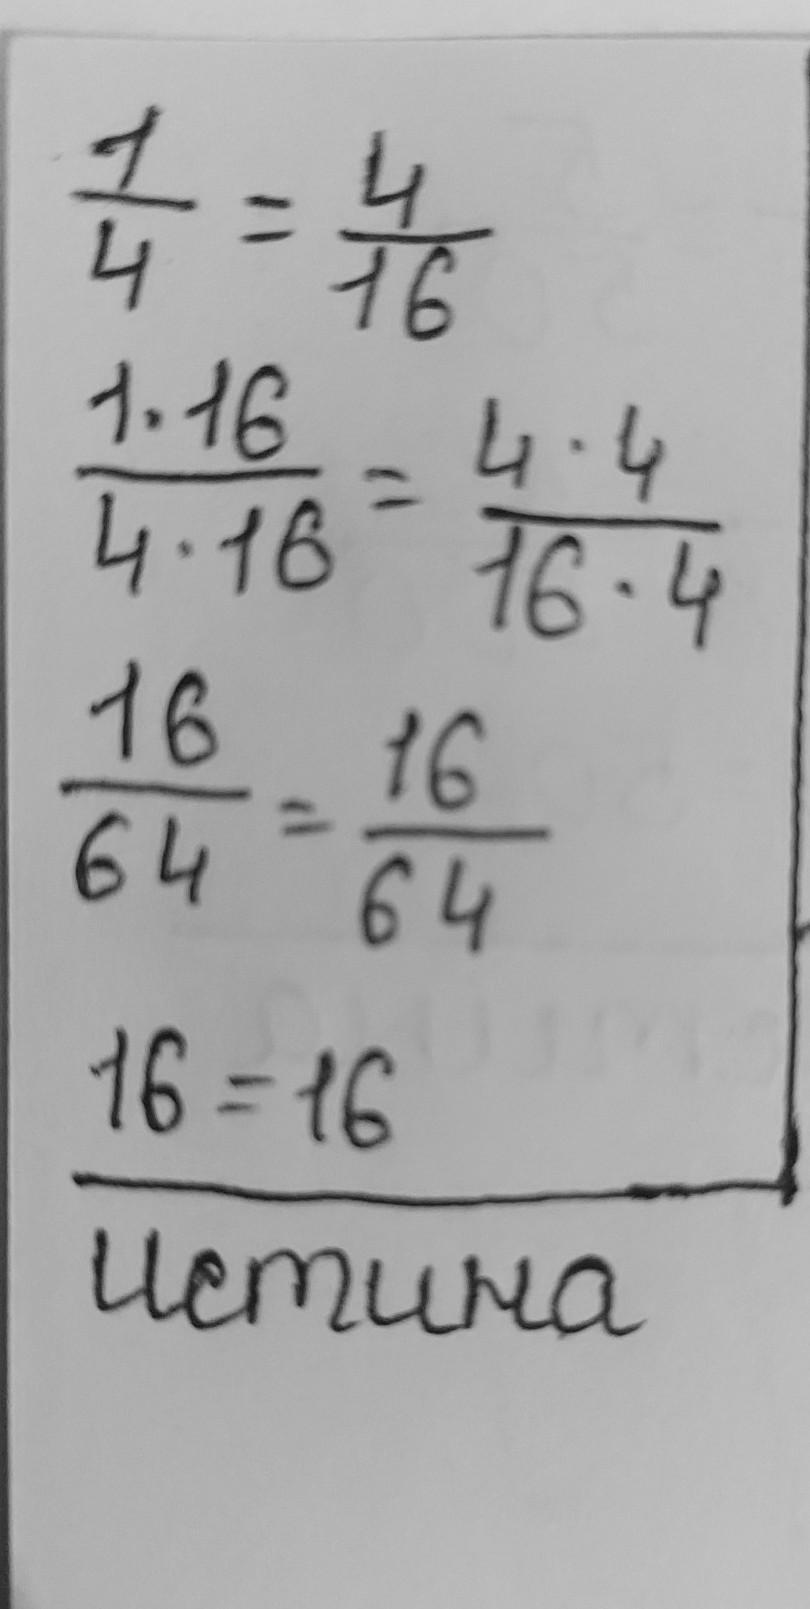 1/4 = 4/16
1·16/4·16 = 4·4/16·4
16/64 = 16/64
16 = 16
Истина